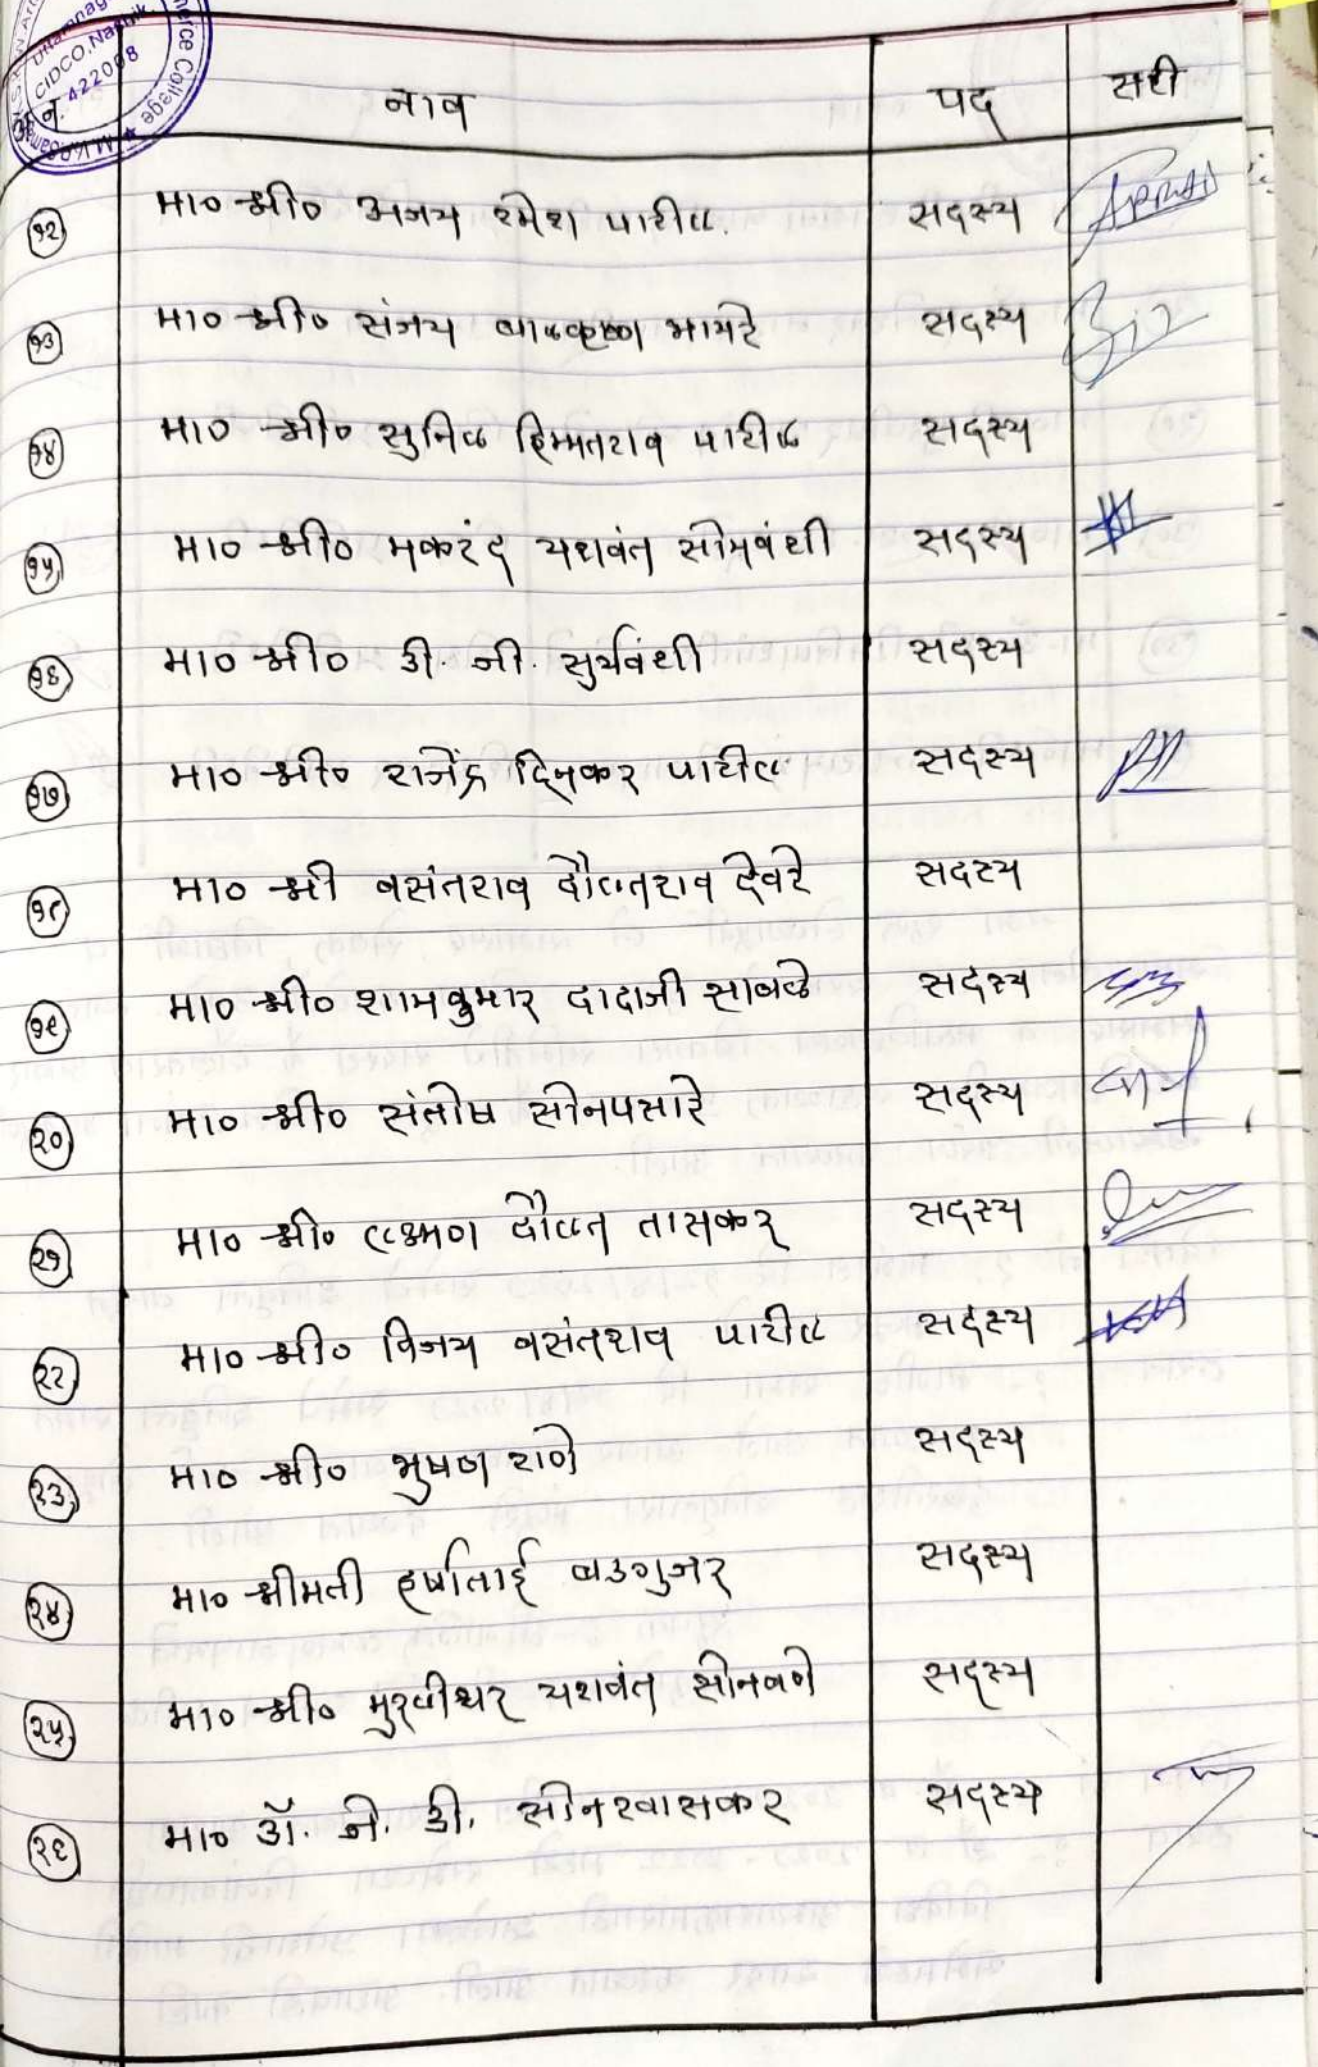 CIDCO, Nashik.
422008
अ.नं. नाव पद सही
१२ मा० श्री० अजय रमेश पाटील. सदस्य
१३ मा० श्री० संजय बाळकृष्ण भामरे सदस्य
१४ मा० श्री० सुनिल हिम्मतराव पाटील सदस्य
१५ मा० श्री० मकरंद यशवंत सोमवंशी सदस्य
१६ मा० श्री० डी. जी. सुर्यवंशी सदस्य
१७ मा० श्री० राजेंद्र दिनकर पाटील सदस्य
१८ मा० श्री वसंतराव दौलतराव देवरे सदस्य
१९ मा० श्री० शामकुमार दादाजी साबळे सदस्य
२० मा० श्री० संतोष सोनपसारे सदस्य
२१ मा० श्री० लक्ष्मण दौलत तासकर सदस्य
२२ मा० श्री० विजय वसंतराव पाटील सदस्य
२३ मा० श्री० भुषण राणे सदस्य
२४ मा० श्रीमती हर्षाताई बडगुजर सदस्य
२५ मा० श्री० मुरलीधर यशवंत सोनवणे सदस्य
२६ मा० डॉ. जे. डी. सोनखासकर सदस्य